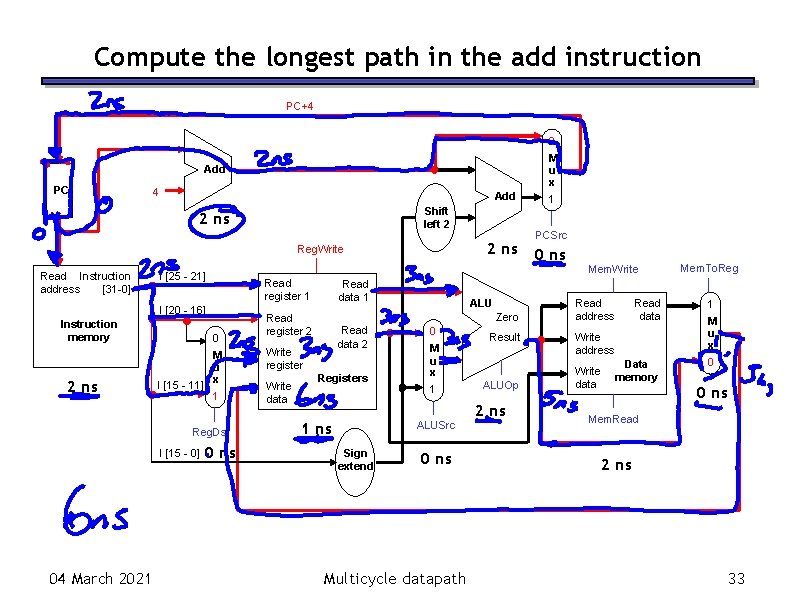 Compute the longest path in the add instruction
2ns
PC+4
0
M
u
x
1
Add
2ns
PC
0
4
Add
2 ns
Shift
left 2
0
PCSrc
RegWrite
2 ns
0 ns
MemWrite
MemToReg
Read address
Instruction [31-0]
2ns
I [25 - 21]
Read register 1
Read data 1
3ns
ALU
Zero
Read address
Read data
1
M
u
x
0
I [20 - 16]
Instruction memory
Read register 2
Read data 2
3ns
0
M
u
x
1
2ns
Write register
3ns
0
M
u
x
1
Result
Write address
Write data
Data memory
2 ns
I [15 - 11]
Write data
Registers
6ns
ALUOp
5ns
0 ns
RegDst
1 ns
ALUSrc
2 ns
MemRead
I [15 - 0]
0 ns
Sign extend
0 ns
2 ns
6ns
04 March 2021
Multicycle datapath
33